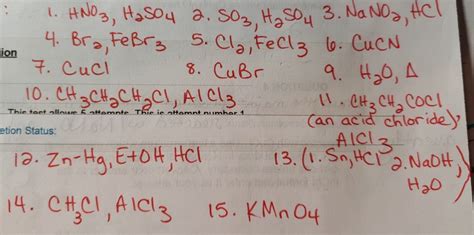 1. HNO3, H2SO4 2. SO3, H2SO4 3. NaNO2, HCl
4. Br2, FeBr3 5. Cl2, FeCl3 6. CuCN
ion
7. CuCl 8. CuBr 9. H2O, Δ
10. CH3CH2CH2Cl, AlCl3 11. CH3CH2COCl
This test allows 5 attempts. This is attempt number 1.
(an acid chloride),
AlCl3
etion Status:
12. Zn-Hg, EtOH, HCl 13. (1. Sn, HCl 2. NaOH, H2O)
14. CH3Cl, AlCl3 15. KMnO4